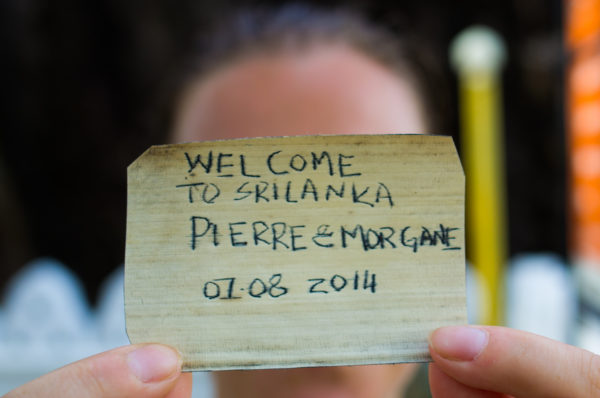 WELCOME
TO SRILANKA
PIERRE & MORGANE
07.08 2014